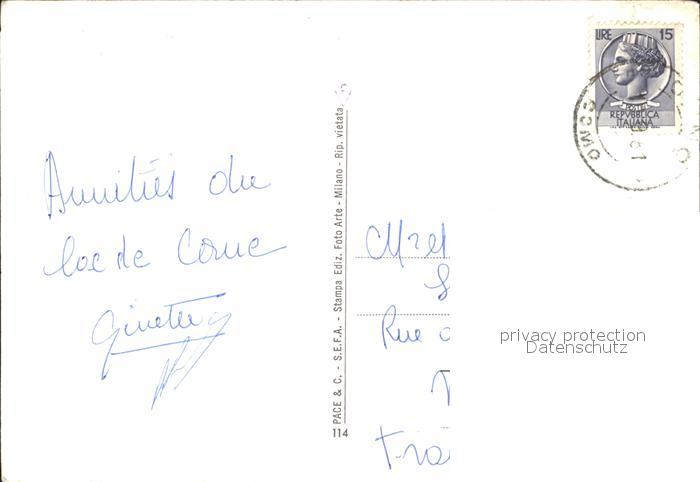 LIRE 15
POSTE
REPVBBLICA
ITALIANA
COMO
Amitiés du
lac de Come
Ginette
PACE & C. - S.E.F.A. - Stampa Ediz. Foto Arte - Milano - Rip. vietata
114
Rue
privacy protection
Datenschutz